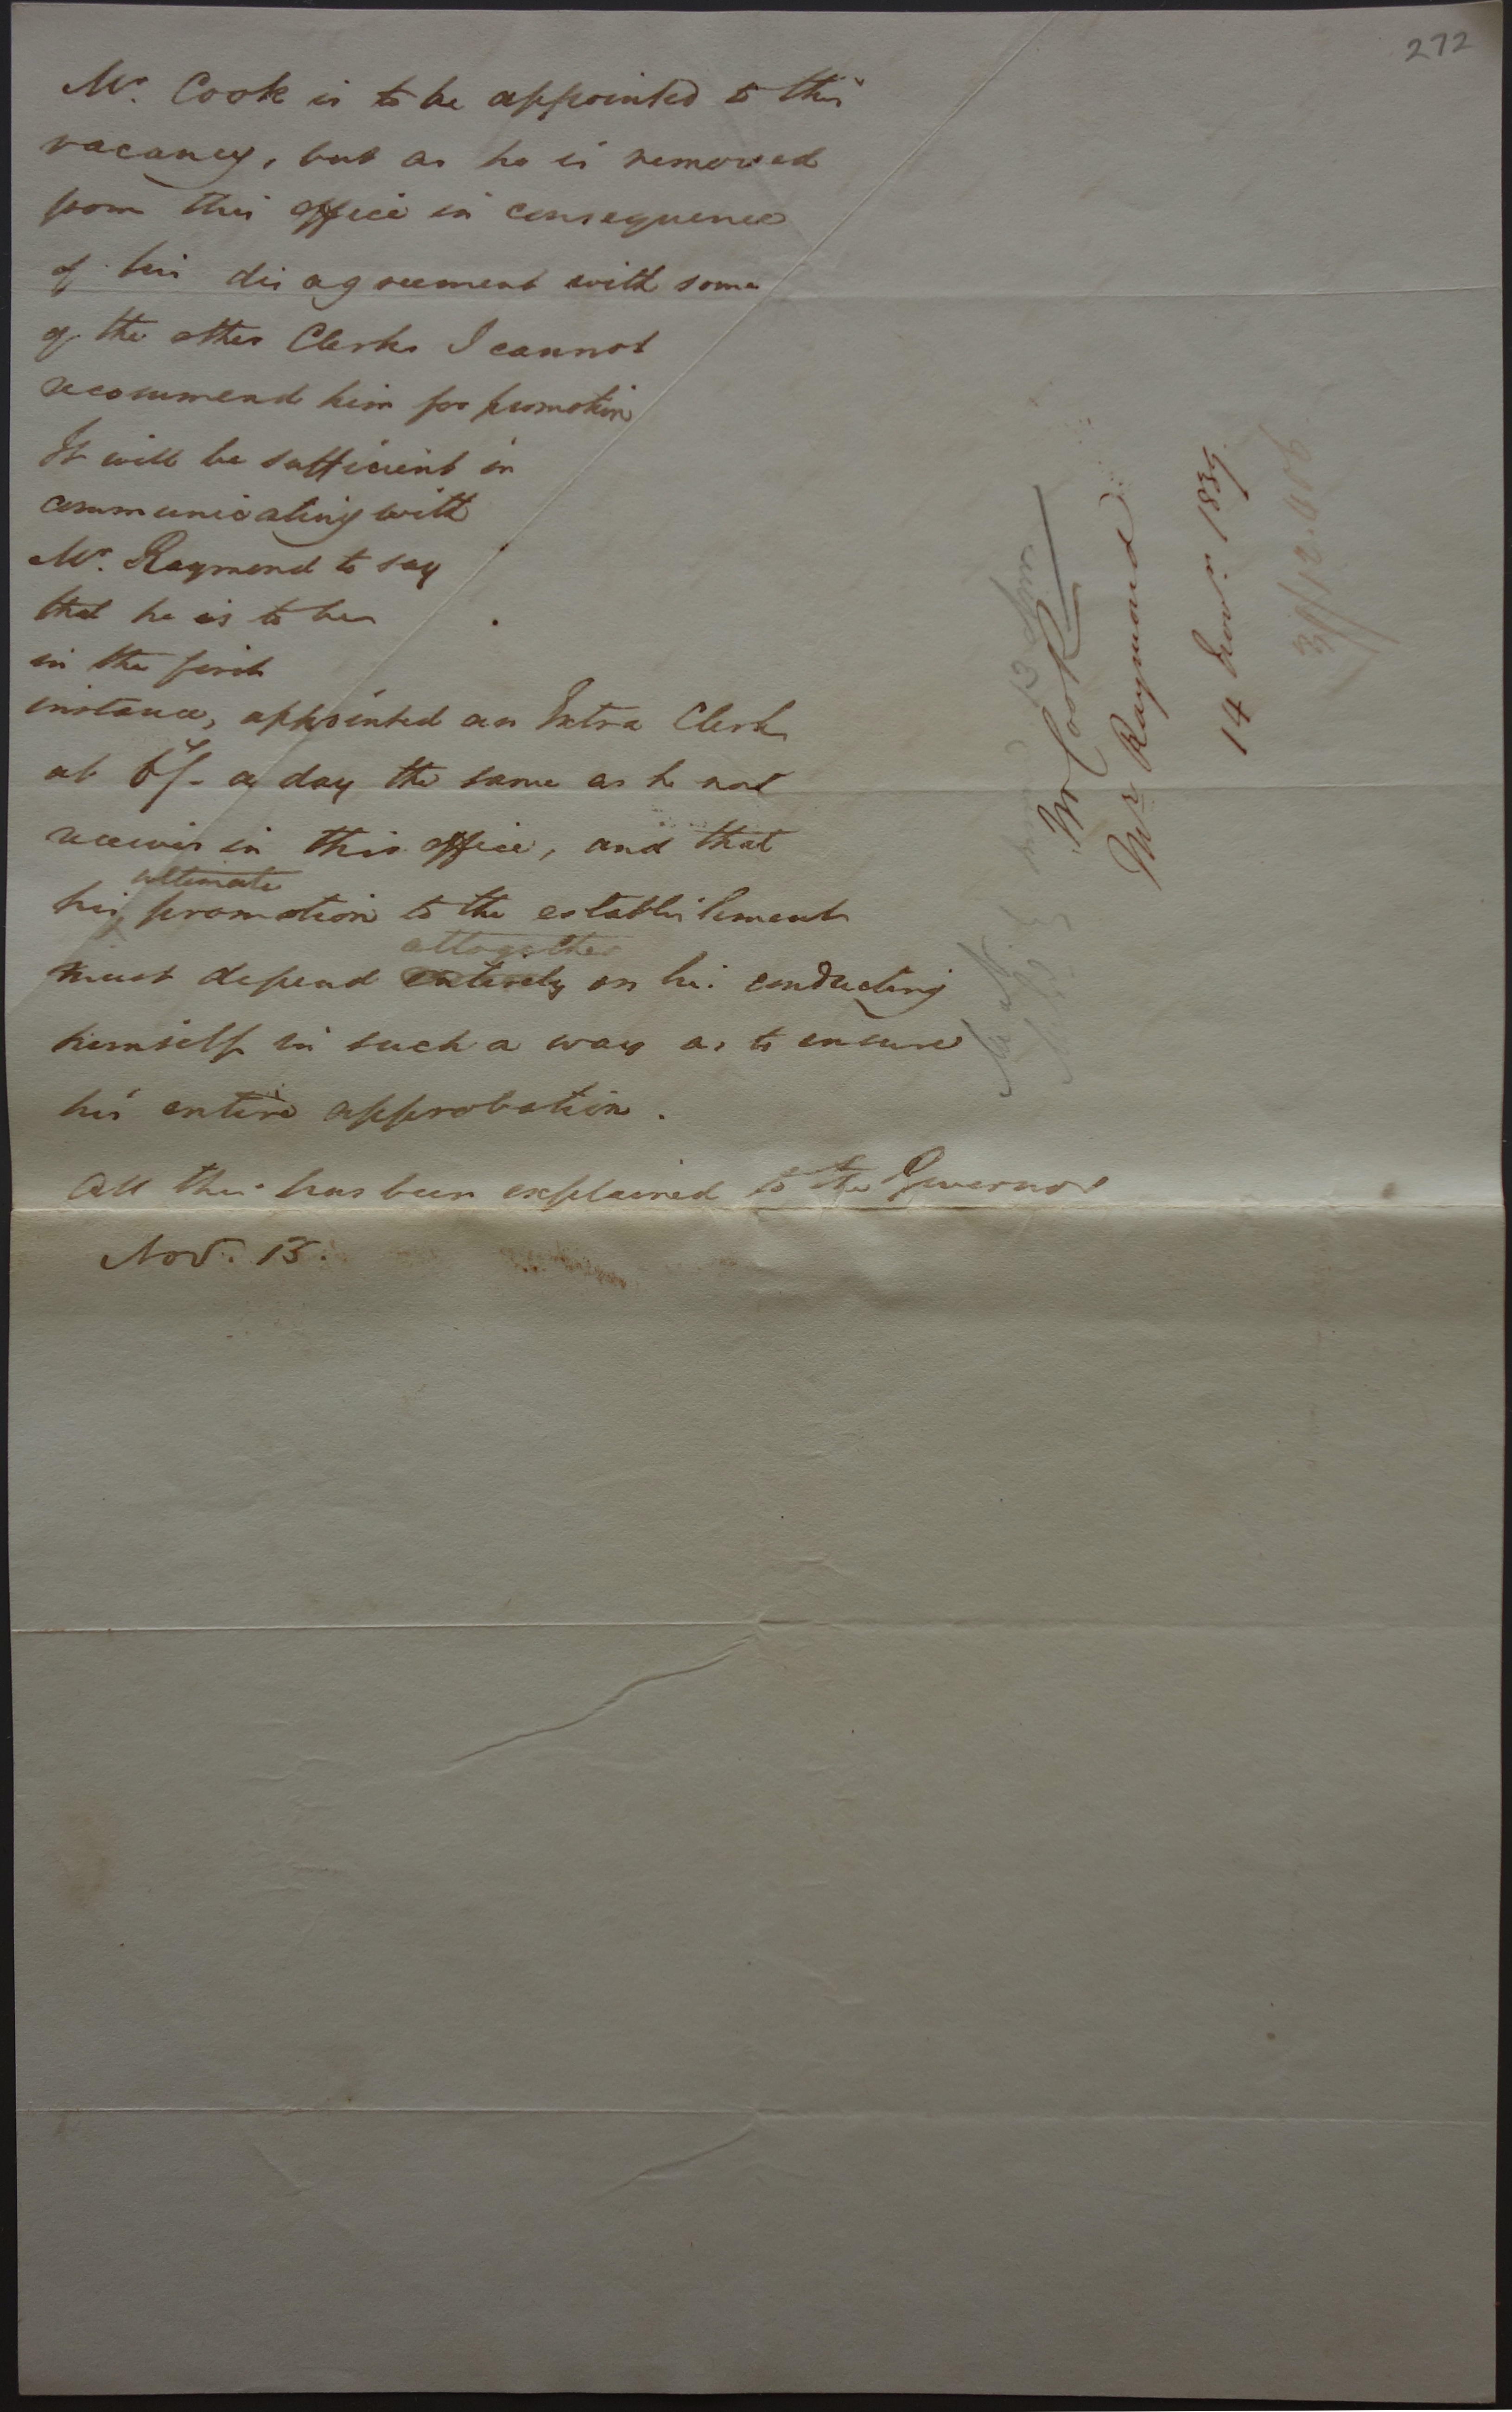 272
Mr. Cook is to be appointed to this
vacancy, but as he is removed
from this office in consequence
of his disagreement with some
of the other Clerks I cannot
recommend him for promotion
It will be sufficient in
communicating with
Mr. Raymond to say
that he is to be
in the first
instance, appointed an Extra Clerk
at a day the same as he now
receives in this office, and that
ultimate
his promotion to the establishment
altogether
must depend entirely on his conducting
himself in such a way as to ensure
his entire approbation.
All this has been explained to the Governor
Nov. 13.
Mr Cook
Mr Raymond
14 Novr. 1839.